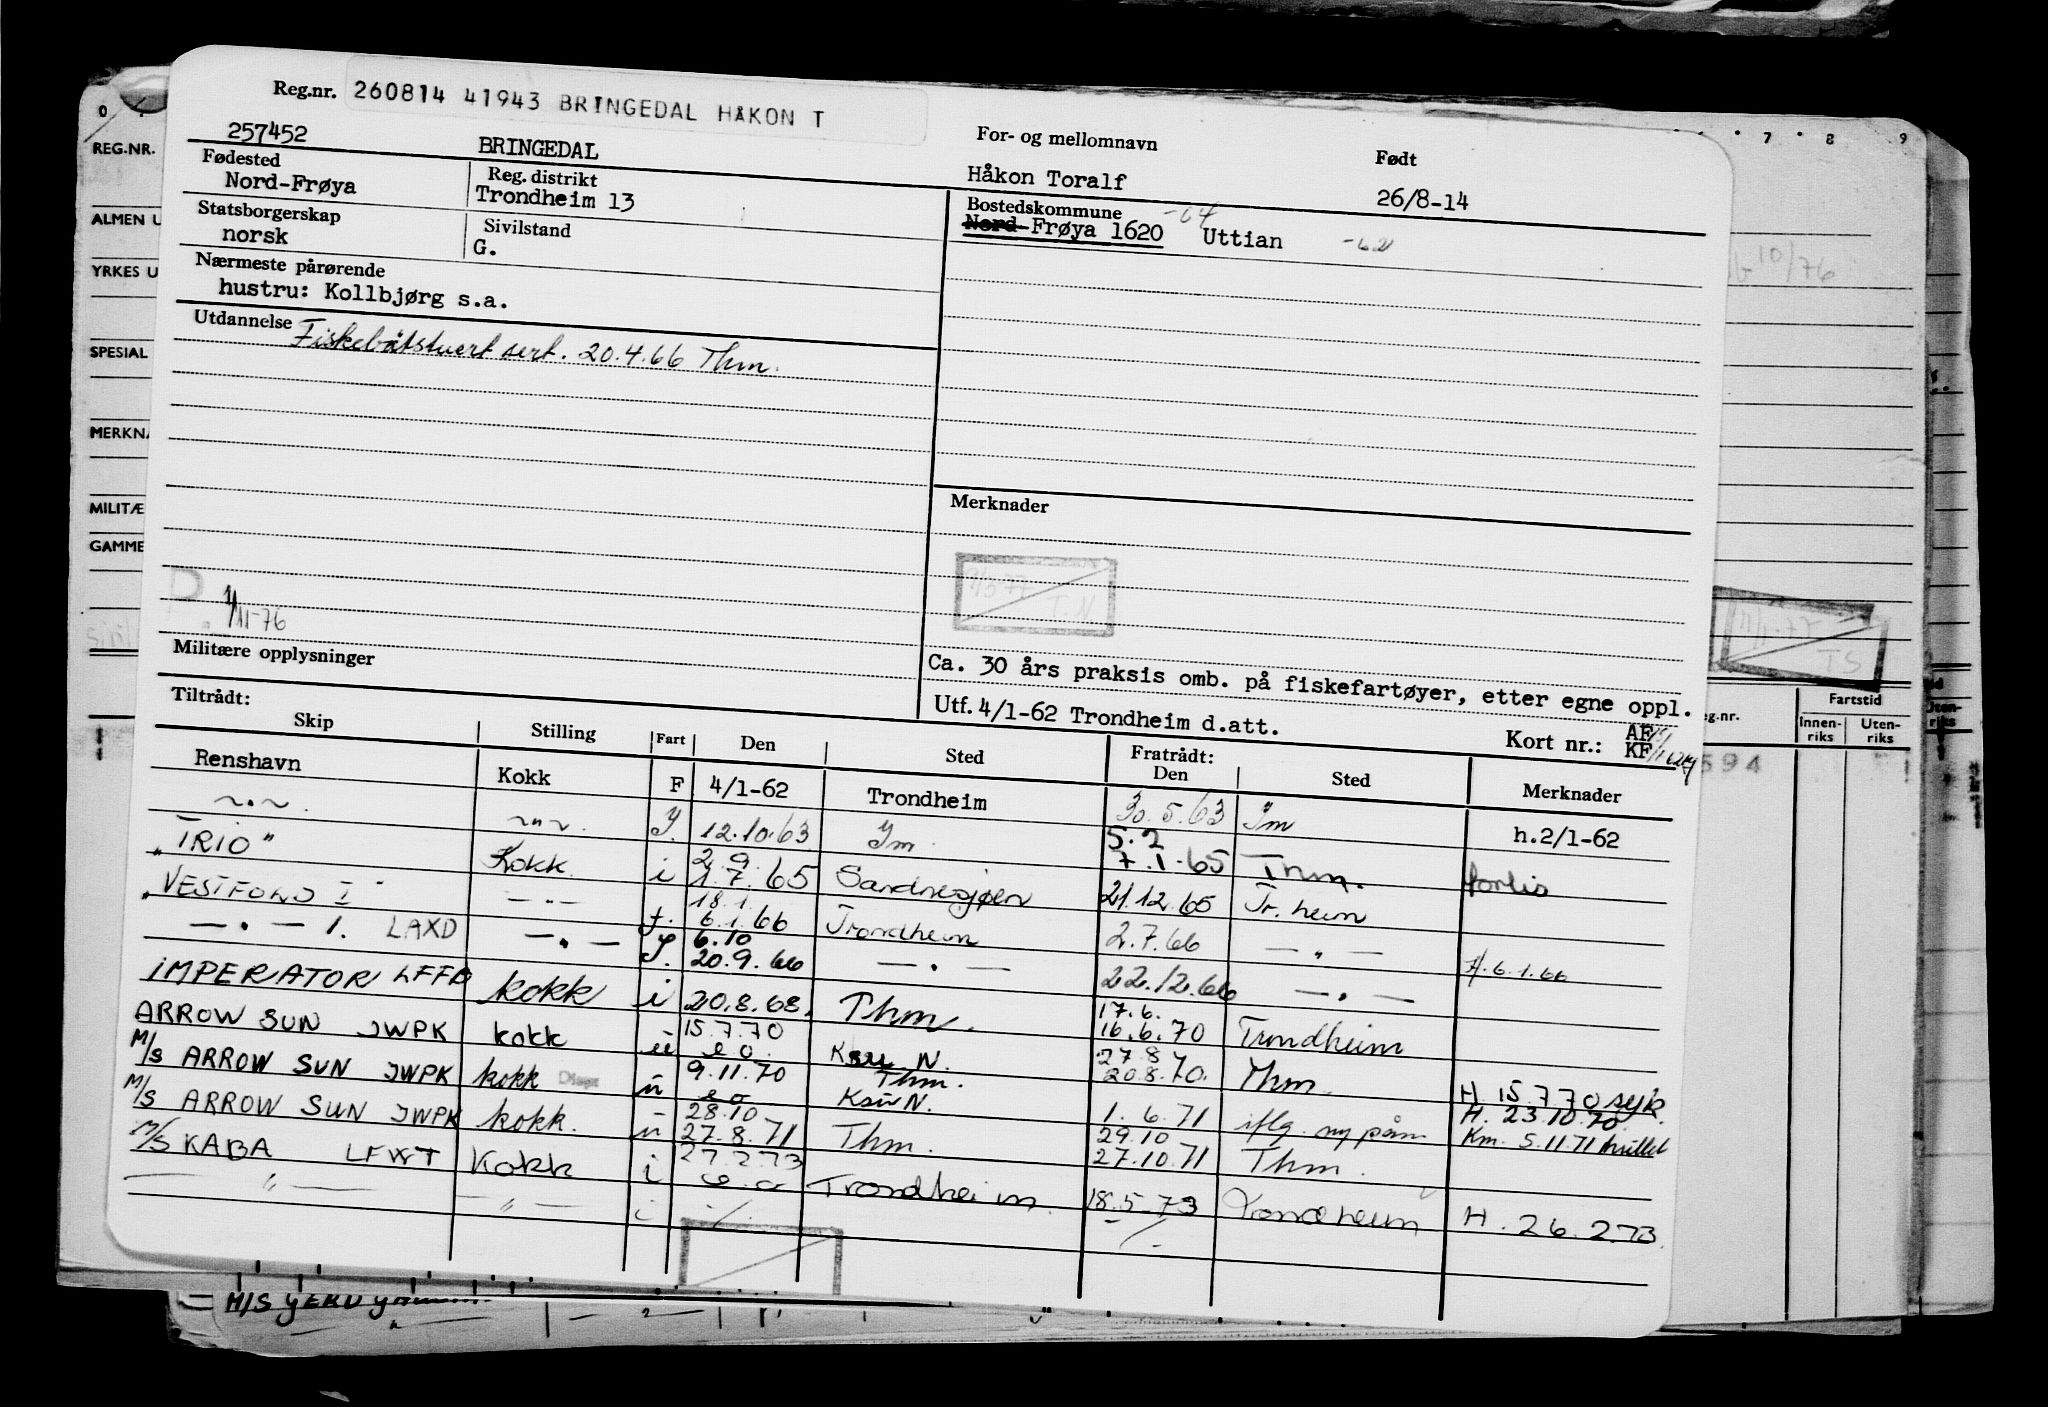 Reg.nr. 260814 41943 BRINGEDAL HÅKON T
257452 BRINGEDAL
For- og mellomnavn Født
Håkon Toralf 26/8-14
Fødested Reg. distrikt
Nord-Frøya Trondheim 13
Bostedskommune -64
Nord-Frøya 1620 Uttian -62
Statsborgerskap Sivilstand
norsk G.
Nærmeste pårørende
hustru: Kollbjørg s.a.
Utdannelse Fiskebåtstuert sert. 20.4.66 Thm.
Merknader
1/11-76
Militære opplysninger
Ca. 30 års praksis omb. på fiskefartøyer, etter egne oppl.
Utf. 4/1-62 Trondheim d.att.
Kort nr.: AF
KF
Tiltrådt: Fratrådt:
Skip Stilling Fart Den Sted Den Sted Merknader
Renshavn Kokk F 4/1-62 Trondheim 30.5.63 Ym h.2/1-62
~"~ ~"~ Y. 12.10.63 Ym 5.2
"TRIO" Kokk i 2.9. 1.7.65 Sandnesjøen 7.1.65 Thm. forlis
"VESTFJORD I" -"- f. 18.1. 6.1.66 Trondheim 21.12.65 Tr.heim
— " — 1. LAXD — " — Y. 6.10 20.9.66 — " — 2.7.66 — " — H. 6.1.66
IMPERATOR LFFB kokk i 20.8.68. Thm. 22.12.66 — " —
ARROW SUN JWPK kokk 15.7.70 17.6. 16.6.70 Trondheim
M/S ARROW SUN JWPK kokk ü 9.11.70 Thm. 27.8 20.8.70. Thm. H. 15.7.70 syk.
H. 23.10.70
M/S ARROW SUN JWPK kokk. ü 28.10 27.8.71 Thm. 1.6.71 iflg. ny påm Km. 5.11.71
M/S KABA LFWT Kokk i 27.2.73 Trondheim 29.10 27.10.71 Thm.
— " — — " — i 18.5-73 Trondheim H. 26.2.73.
0 7 8 9
REG.NR.
ALMEN U
YRKES U
SPESIAL
MERKNA
MILITÆ
GAMME
10/76
T.N.
TS
Fartstid
Innen-
riks
Uten-
riks
594